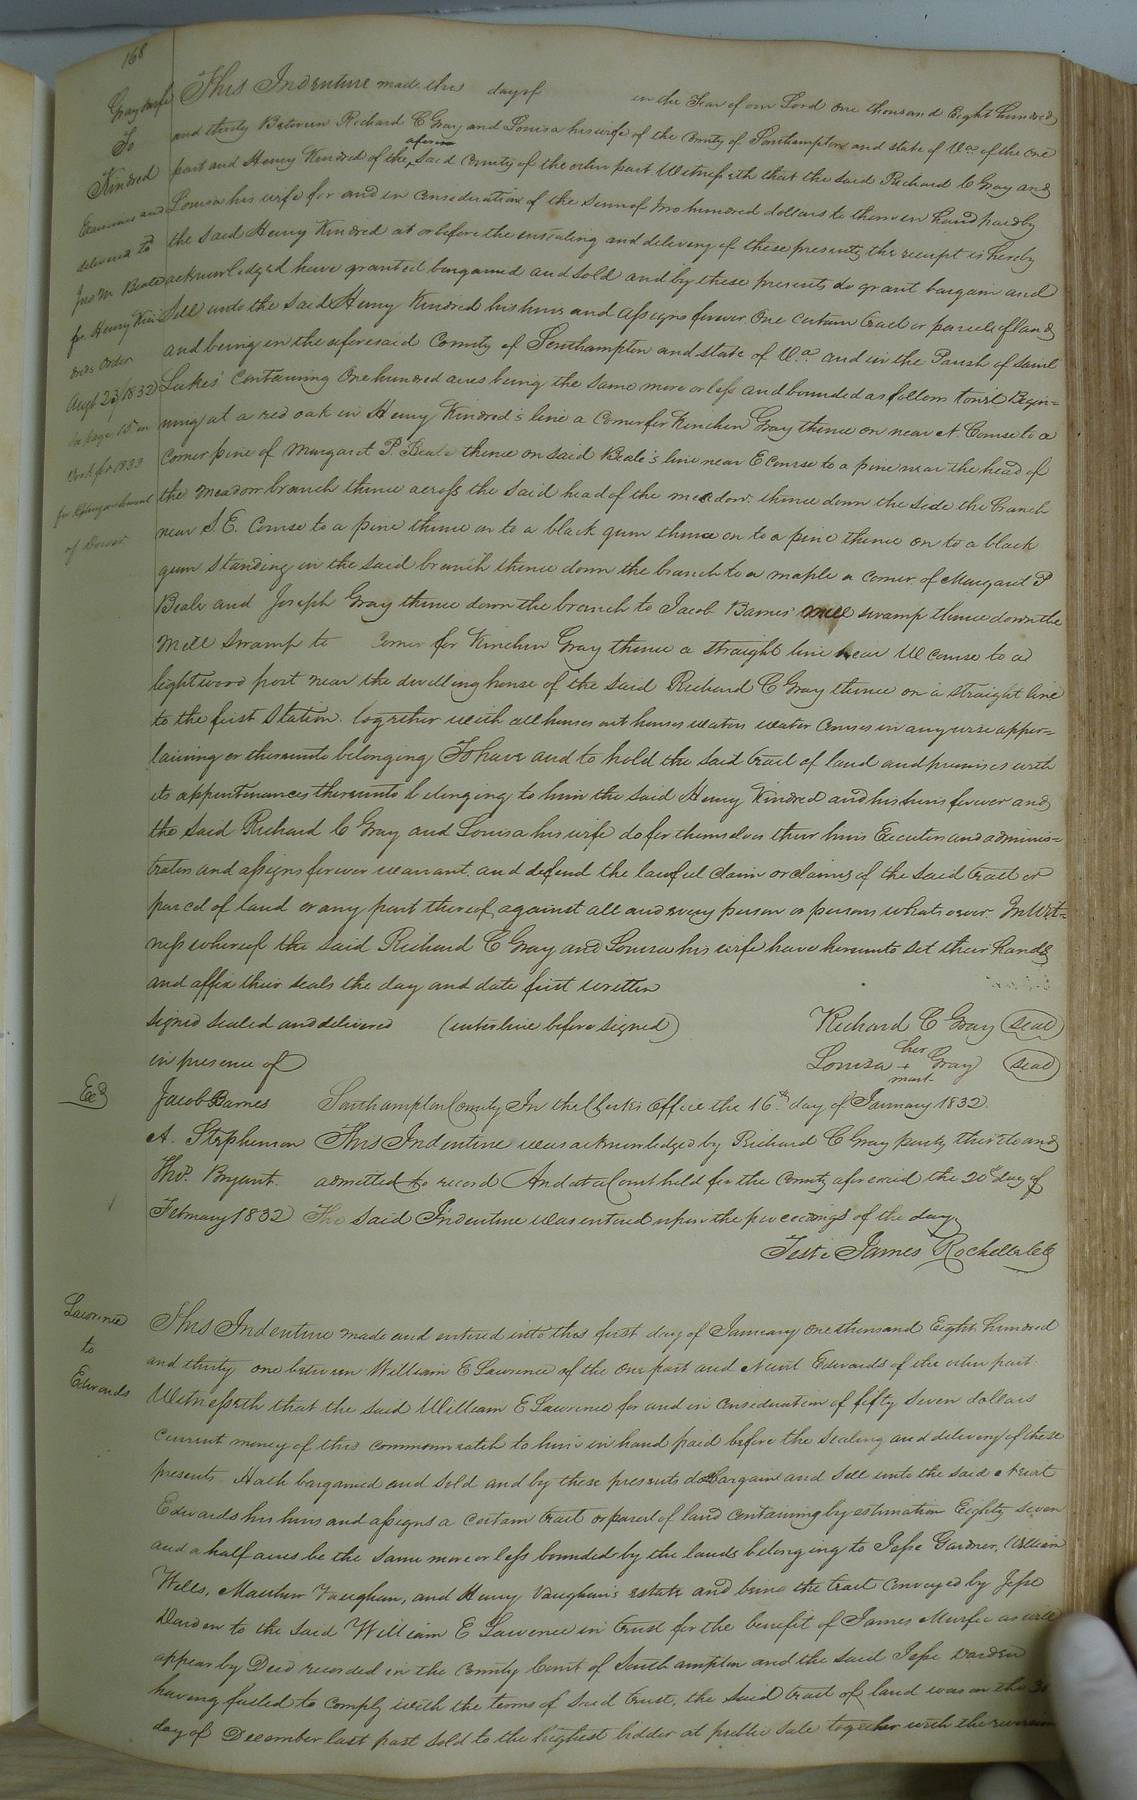 168
Gray & wife
To
Kindred
Examined and
delivered to
Jno M. Beale
for Henry Kin
Augt 23 1832
of Dower
This Indenture made this day of in the Year of our Lord One thousand Eight hundred
and thirty Between Richard C Gray and Louisa his wife of the County of Southampton and state of Va. of the one
part and Henry Kindred of the aforesaid County of the other part Witnesseth that the said Richard C Gray and
Louisa his wife for and in Consideration of the sum of two hundred dollars to them in hand paid by
the said Henry Kindred at or before the ensealing and delivery of these presents the receipt is hereby
acknowledged have granted bargained and sold and by these presents do grant bargain and
Sell unto the said Henry Kindred his heirs and assigns forever One certain tract or parcel of land
and being in the aforesaid County of Southampton and state of Va. and in the Parish of saint
Lukes' Containing One hundred acres being the same more or less and bounded as follows towit Begin=
ning at a red oak in Henry Kindred's line a Corner for Kinchen Gray thence on near N. Course to a
corner pine of Margaret P. Beale thence on said Beale's line near E course to a pine near the head of
the meadow branch thence across the said head of the meadow. thence down the side the branch
near S E. Course to a pine thence on to a black gum thence on to a pine thence on to a black
gum standing in the said branch thence down the branch to a maple a corner of Margaret P
Beale and Joseph Gray thence down the branch to Jacob Barnes' mill swamp thence down the
Mill Swamp to Corner for Kinchen Gray thence a straight line near W course to a
lightwood post near the dwelling house of the said Richard C Gray thence on a straight line
to the first Station. together with all houses out houses waters water Courses in any wise apper=
taining or thereunto belonging To have and to hold the said tract of land and premises with
its appurtenances thereunto belonging to him the said Henry Kindred and his heirs forever and
the said Richard C Gray and Louisa his wife do for themselves their heirs Executors and adminis=
trators and assigns forever warrant and defend the lawful claim or claims of the said tract or
parcel of land or any part thereof against all and every person or persons whatsoever. In Wit=
ness whereof the said Richard C Gray and Louisa his wife have hereunto set their hands
and affix their seals the day and date first written
signed sealed and delivered (enterline before signed) Richard C Gray (seal)
in presence of Louisa her + mark Gray (seal)
Exd
Jacob Barnes Southampton County In the Clerk's Office the 16th day of January 1832.
A. Stephenson This Indenture was acknowledged by Richard C Gray party thereto and
Tho. Bryant. admitted to record And at a Court held for the County aforesaid the 20th day of
February 1832 The said Indenture was entered upon the proceedings of the day
Teste James Rochelle CC
Lawrence
to
Edwards
This Indenture made and entered into this first day of January one thousand Eight hundred
and thirty one between William E Lawrence of the one part and Newit Edwards of the other part
Witnesseth that the said William E Lawrence for and in Consideration of fifty seven dollars
current money of this commonwealth to him in hand paid before the sealing and delivery of these
presents. Hath bargained and sold and by these presents do Bargain and Sell unto the said Newit
Edwards his heirs and assigns a certain tract or parcel of land containing by estimation Eighty seven
and a half acres be the same more or less bounded by the lands belonging to Jesse Gardner, William
Wells, Matthew Vaughan, and Henry Vaughan's estate and being the tract conveyed by Jesse
Darden to the said William E Lawrence in trust for the benefit of James Murfee as will
appear by Deed recorded in the County Court of Southampton and the said Jesse Darden
having failed to comply with the terms of said trust, the said tract of land was on the
day of December last past sold to the highest bidder at public sale together with the